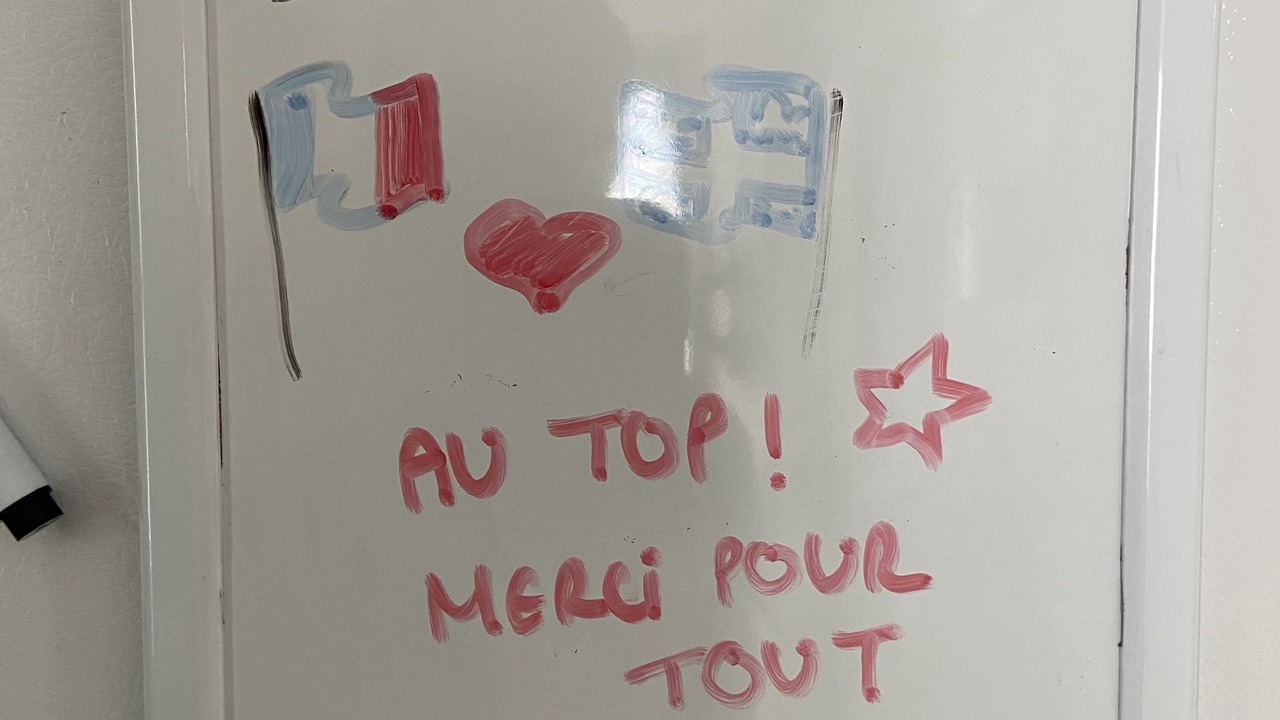 AU TOP !
MERCi POUR
TOUT